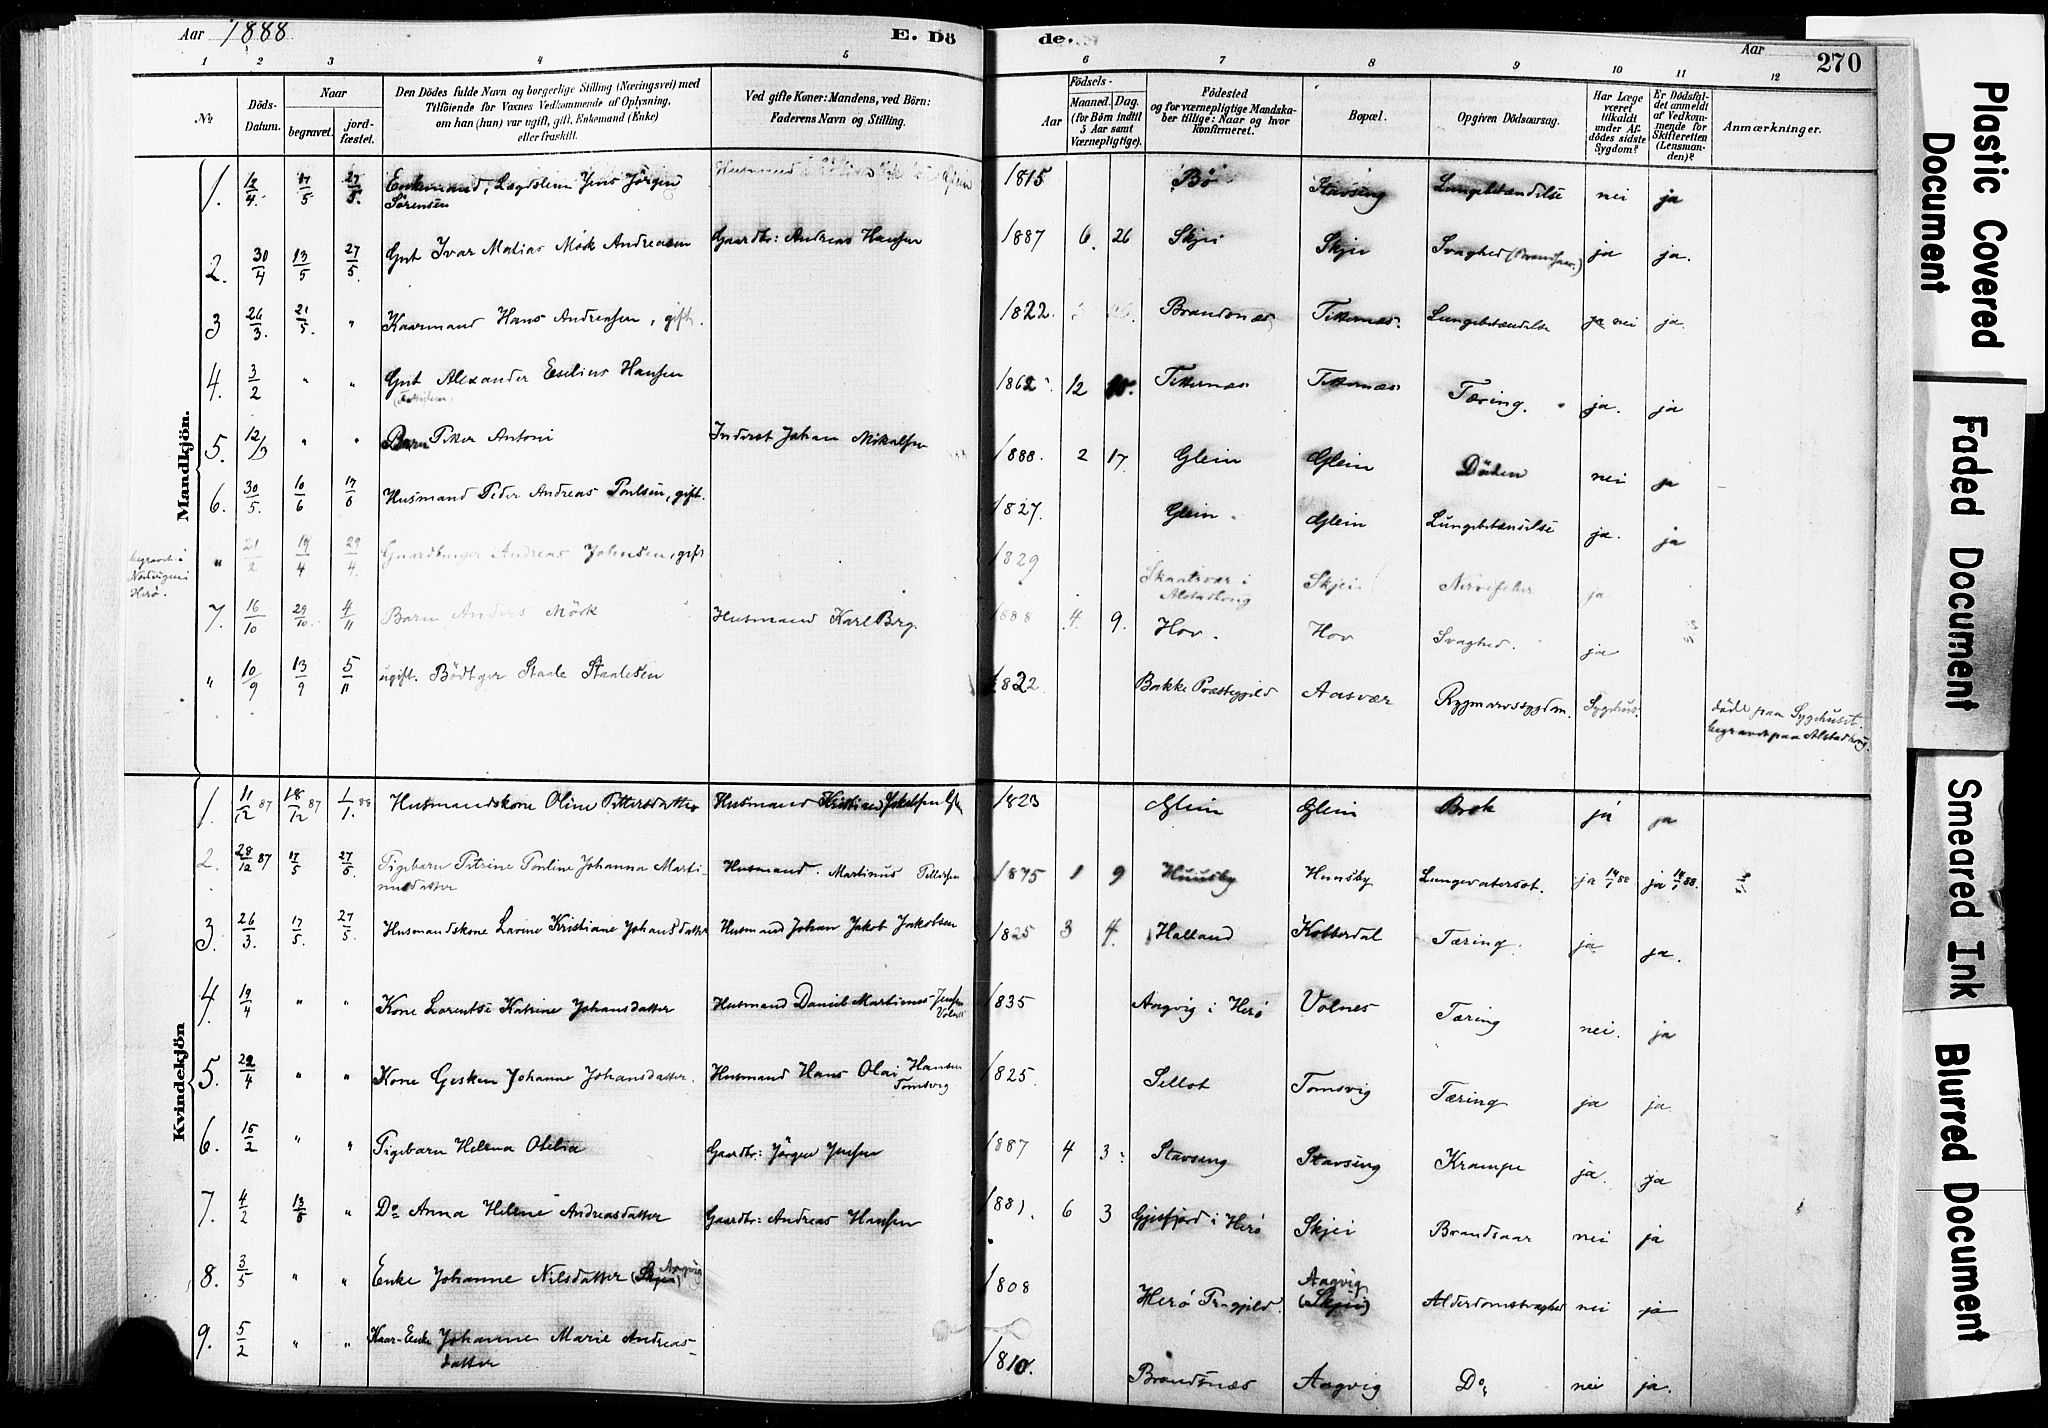 Aar 1888
E. Dö
de.
Aar
270
1 2 3 4 5 6 7 8 9 10 11 12
No
Döds-Datum.
Naar
begravet.
jord-fæstet.
Den Dödes fulde Navn og borgerlige Stilling (Næringsvei) med
Tilföiende for Voxnes Vedkommende af Oplysning,
om han (hun) var ugift, gift, Enkemand (Enke)
eller fraskilt.
Ved gifte Koner: Mandens, ved Börn:
Faderens Navn og Stilling.
Födsels-
Aar
Maaned.
Dag.
(for Börn indtil
5 Aar samt
Værnepligtige).
Födested
og for værnepligtige Mandska-
ber tillige: Naar og hvor
konfirmeret.
Bopæl.
Opgiven Dödsaarsag.
Har Læge
været
tilkaldt
under Af-
dödes sidste
Sygdom?
Er Dödsfal-
det anmeldt
af Vedkom-
mende for
Skifteretten
(Lensman-
den)?
Anmærkninger.
Mandkjön.
1. 17/5 27/5 Enkemand, Lægdslem Jens Jörgen Sörensen Husmand 1815 Bö Stavseng Lungebetændelse nei ja
2. 30/4 13/5 27/5 Gut Ivar Matias Mörk Andreasen Gaardbr: Andreas Hansen 1887 6. 26 Skjei Skjei Svaghed ja ja.
3 26/3. 21/5. " Kaarmand Hans Andreasen, gift. 1822. Brandsnæs Lungebetændelse nei ja.
4. 3/2 " " Gut Alexander Eselius Hansen 1862 12 Tæring. ja. ja
5. 12/3 " " Barn Peter Antoni Inderst Johan Mikalsen 1888. 2 17. Glein Glein Döden nei ja
6. 30/5. 10/6 17/6 Husmand Peder Andreas Poulsen, gift. 1827. Glein Glein Lungebetændelse ja. ja
begravet i
Nordvigen i
Herø.
" 21/2 14/4 29/4. Gaardbruger Andreas Johnsen, gift 1829 Skaalvær i Alstahoug Skjei. Nervefeber ja
7. 16/10 29/10. 4/11 Barn Anders Mörk Husmand Karl Brg. 1888 4. 9. Hov. Hov Svaghed. ja
" 10/9 13/9 5/11 ugift. Bödtger Staale Staalesen 1822 Bakke Præstegjeld Aasvær Rygmarvssygdom. Sygehus. död paa Sygehuset. begravet paa Alstadhoug.
Kvindekjön
1. 11/12 87 18/12 87 1/1. 88 Husmandskone Oline Pettersdatter Husmand Kristian Jakobsen 1823 Glein Glein Brok ja ja
2. 28/12 87 17/5 27/5 Pigebarn Petrine Pouline Johanna Marti-
nusdatter Husmand. Martinus 1875 1 9 Huusby Huusby ja ja
3. 26/3. 17/5. 27/5 Husmandskone Lavine Kristiane Johansdatter Husmand Johan Jakob Jakobsen 1825 3 4. Halland Kobberdal Tæring. ja ja.
4. 19/4 " " Kone Lorentse Katrine Johansdatter Husmand Daniel Martinus Jensen Volnes 1835 Aagvig i Herö Volnes Tæring nei. ja
5. 22/4 " " Kone Gesken Johanne Johansdatter. Husmand Hans Olai Hansen Tomsvig 1825 Sellot Tomsvig Tæring ja ja.
6. 15/2 " " Pigebarn Helena Otelia Gaardbr: Jörgen Jensen 1887 4 3. Stavseng Stavseng Krampe ja. ja
7. 4/2 13/5 " Do Anna Helene Andreasdatter Gaardbr: Andreas Hansen 1881. 6 3 i Herö Skjei Brandsaar nei ja
8. 3/5 " " Enke Johanne Nilsdatter (Skjei) Aagvig 1808 Herö Pr-gjeld. Aagvig (Skjei) Alderdomssvaghed nei ja
9. 5/2 " " Kaar-Enke Johanne Marie Andreas-
datter 1810. Brandsnæs Aagvig Do. nei ja.
Plastic Covered Document
Faded Document
Smeared Ink
Blurred Document